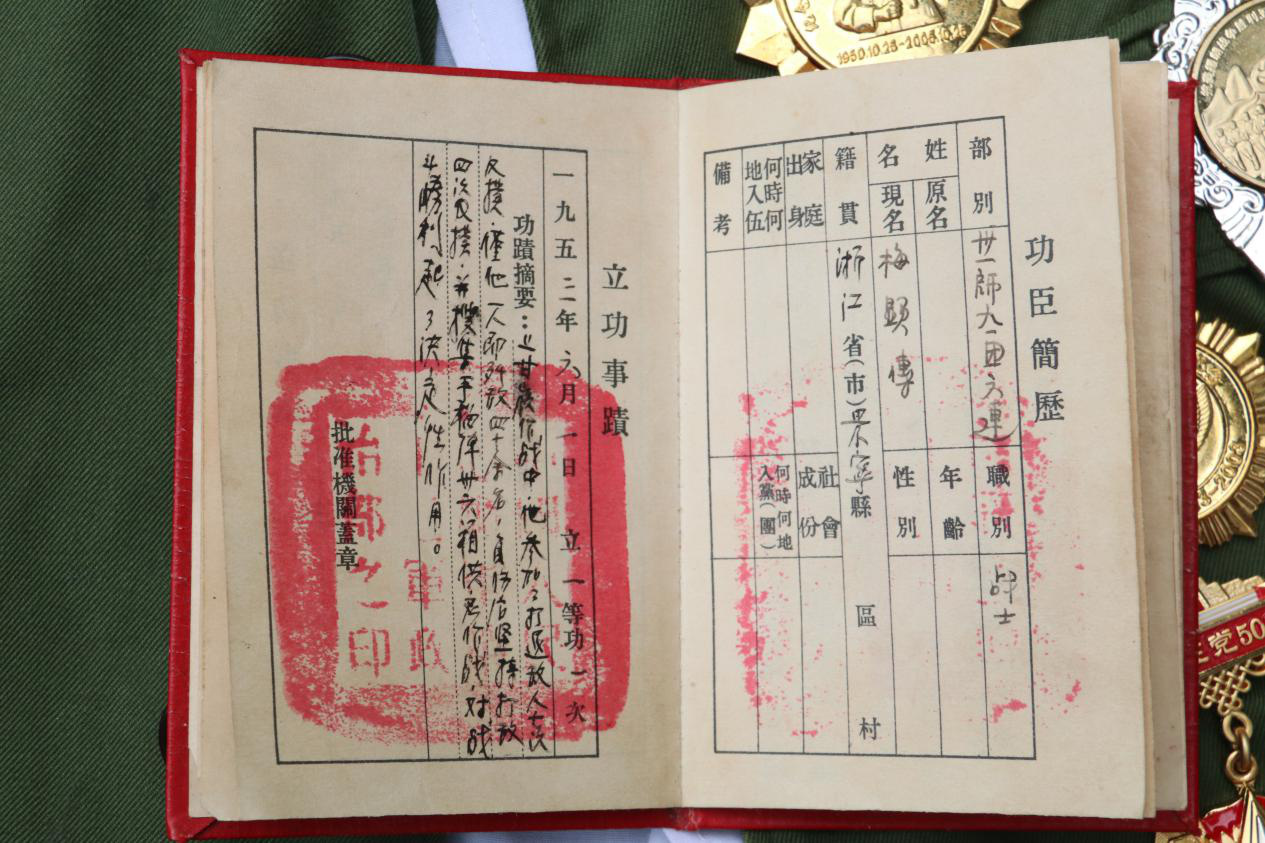 功臣簡歷
部別 卅一師九一团六連 職別 战士
姓名 原名 年齡
現名 梅顯傳 性別
籍貫 浙江省(市)景宁縣 區 村
家庭出身 社會成份
何時何地入伍 何時何地入黨(團)
備考
立功事蹟
一九五二年六月一日 立一等功一次
功蹟摘要：作战中，他参加了打退敌人七次
反撲，僅他一人即歼敌四十余名，負伤后坚持打敌
四次反撲，并搜集手榴弹卅六箱供忍作战，对战
斗勝利起了决定性作用。
批准機關蓋章
治部之印
軍政
1950.10.25-2005.10.25
党50